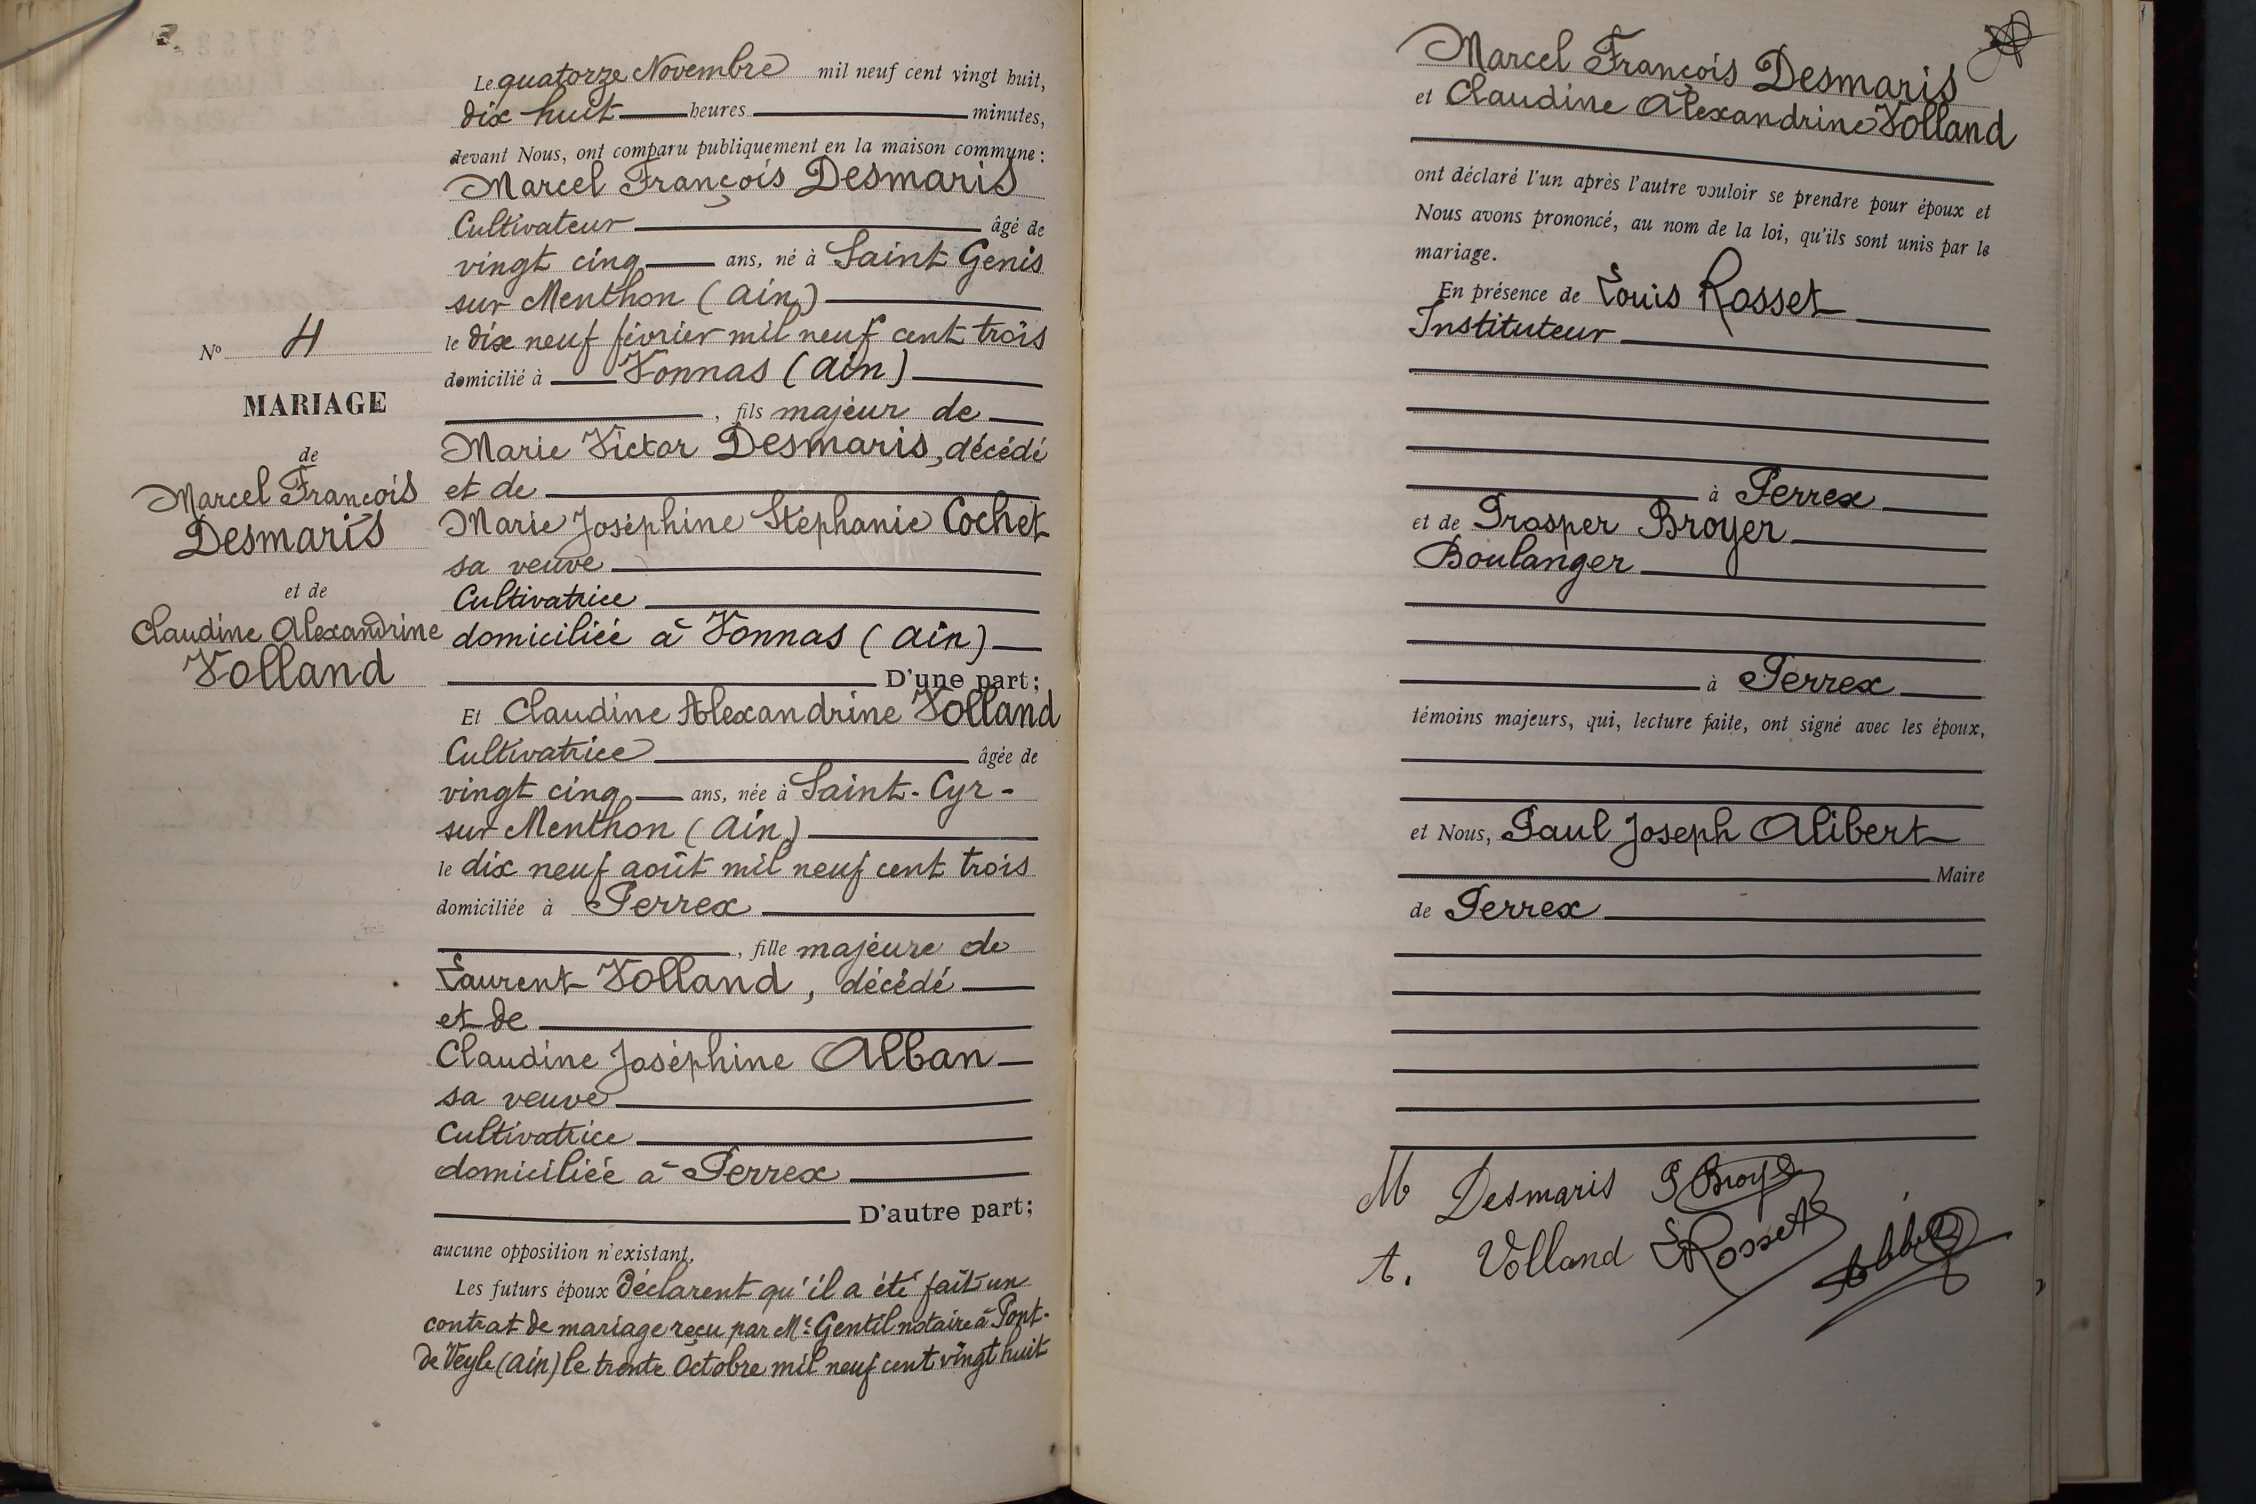 Nº 4
MARIAGE
de
Marcel François
Desmaris
et de
Claudine Alexandrine
Volland
Le quatorze Novembre mil neuf cent vingt huit,
dix huit heures minutes,
devant Nous, ont comparu publiquement en la maison commune :
Marcel François Desmaris
Cultivateur âgé de
vingt cinq ans, né à Saint Genis
sur Menthon (Ain)
le dix neuf février mil neuf cent trois
domicilié à Vonnas (Ain)
, fils majeur de
Marie Victor Desmaris, décédé
et de
Marie Joséphine Stéphanie Cochet
sa veuve
Cultivatrice
domiciliée à Vonnas (Ain)
D'une part ;
Et Claudine Alexandrine Volland
Cultivatrice âgée de
vingt cinq ans, née à Saint-Cyr-
sur Menthon (Ain)
le dix neuf août mil neuf cent trois
domiciliée à Perrex
, fille majeure de
Laurent Volland, décédé
et de
Claudine Joséphine Alban
sa veuve
Cultivatrice
domiciliée à Perrex
D'autre part ;
aucune opposition n'existant.
Les futurs époux déclarent qu'il a été fait un
contrat de mariage reçu par Me Gentil notaire à Pont-
de Veyle (Ain) le trente Octobre mil neuf cent vingt huit
Marcel François Desmaris
et Claudine Alexandrine Volland
ont déclaré l'un après l'autre vouloir se prendre pour époux et
Nous avons prononcé, au nom de la loi, qu'ils sont unis par le
mariage.
En présence de Louis Rosset
Instituteur
à Perrex
et de Prosper Broyer
Boulanger
à Perrex
témoins majeurs, qui, lecture faite, ont signé avec les époux,
et Nous, Paul Joseph Alibert
Maire
de Perrex
M Desmaris P Broyer
A. Volland L Rosset Alibert